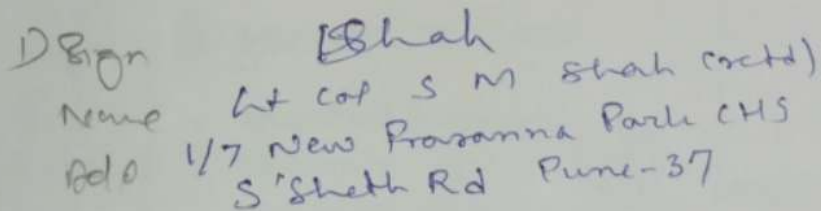 1) Sign Shah
Name Lt Col S M Shah (retd)
Add 1/7 New Prasanna Park CHS
S'Sheth Rd Pune-37